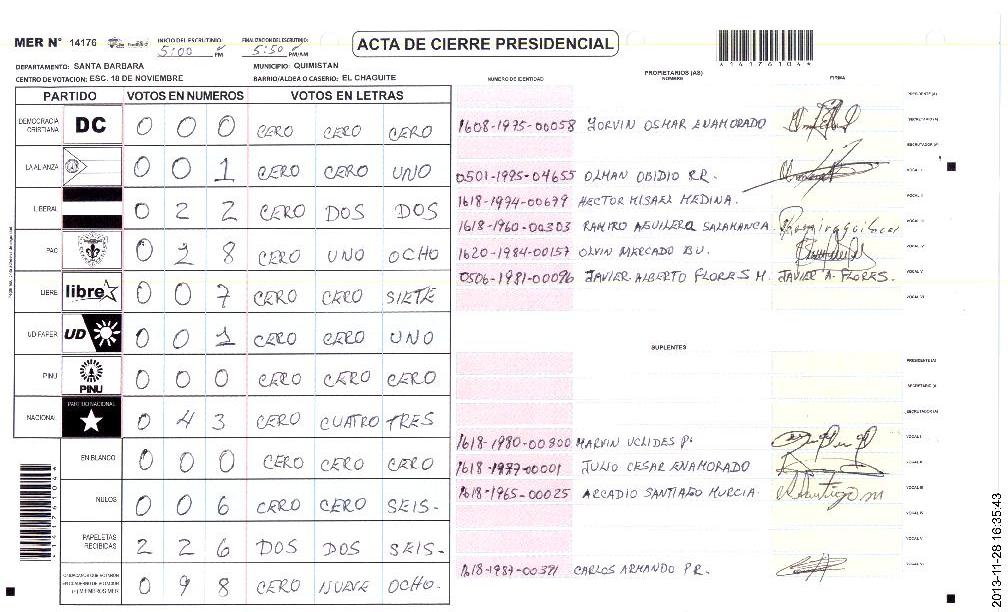 MER N° 14176 INICIO DEL ESCRUTINIO: 5:00 PM FINALIZACION DEL ESCRUTINIO: 5:50 PM/AM ACTA DE CIERRE PRESIDENCIAL
*14176104*
DEPARTAMENTO: SANTA BARBARA MUNICIPIO: QUIMISTAN
CENTRO DE VOTACION: ESC. 18 DE NOVIEMBRE BARRIO/ALDEA O CASERIO: EL CHAGUITE
NÚMERO DE IDENTIDAD PROPIETARIOS (AS) NOMBRE FIRMA
PARTIDO VOTOS EN NUMEROS VOTOS EN LETRAS
DEMOCRACIA CRISTIANA DC 0 0 0 CERO CERO CERO
LA ALIANZA 0 0 1 CERO CERO UNO
LIBERAL 0 2 2 CERO DOS DOS
PAC 0 8 CERO UNO OCHO
LIBRE libre 0 0 7 CERO CERO SIETE
UD FAPER UD 0 0 1 CERO CERO UNO
PINU PINU 0 0 0 CERO CERO CERO
NACIONAL PARTIDO NACIONAL 0 4 3 CERO CUATRO TRES
EN BLANCO 0 0 0 CERO CERO CERO
NULOS 0 0 6 CERO CERO SEIS-
PAPELETAS RECIBIDAS 2 2 6 DOS DOS SEIS-
CIUDADANOS QUE VOTARON EN CUADERNO DE VOTACION (+) MIEMBROS MER 0 9 8 CERO NUEVE OCHO.
PRESIDENTE (A)
1608-1975-00058 JORVIN OSMAR ENAMORADO SECRETARIO (A)
ESCRUTADOR (A)
0501-1995-04655 OLMAN OBIDIO R.R. VOCAL I
1618-1994-00679 HECTOR MISAEL MEDINA. VOCAL II
1618-1960-00303 RAMIRO AGUILERA SALAMANCA. VOCAL III
1620-1984-00157 OLVIN MERCADO BU. VOCAL IV
0506-1981-00096 JAVIER ALBERTO FLORES M. JAVIER A. FLORES. VOCAL V
VOCAL VI
SUPLENTES
PRESIDENTE (A)
SECRETARIO (A)
ESCRUTADOR (A)
1618-1980-00300 MARVIN UCLIDES P. VOCAL I
1618-1977-00001 JULIO CESAR ENAMORADO VOCAL II
1618-1965-00025 ARCADIO SANTIAGO MURCIA. VOCAL III
VOCAL IV
VOCAL V
1618-1987-00321 CARLOS ARMANDO P.R. VOCAL VI
*14176104*
2013-11-28 16:35:43